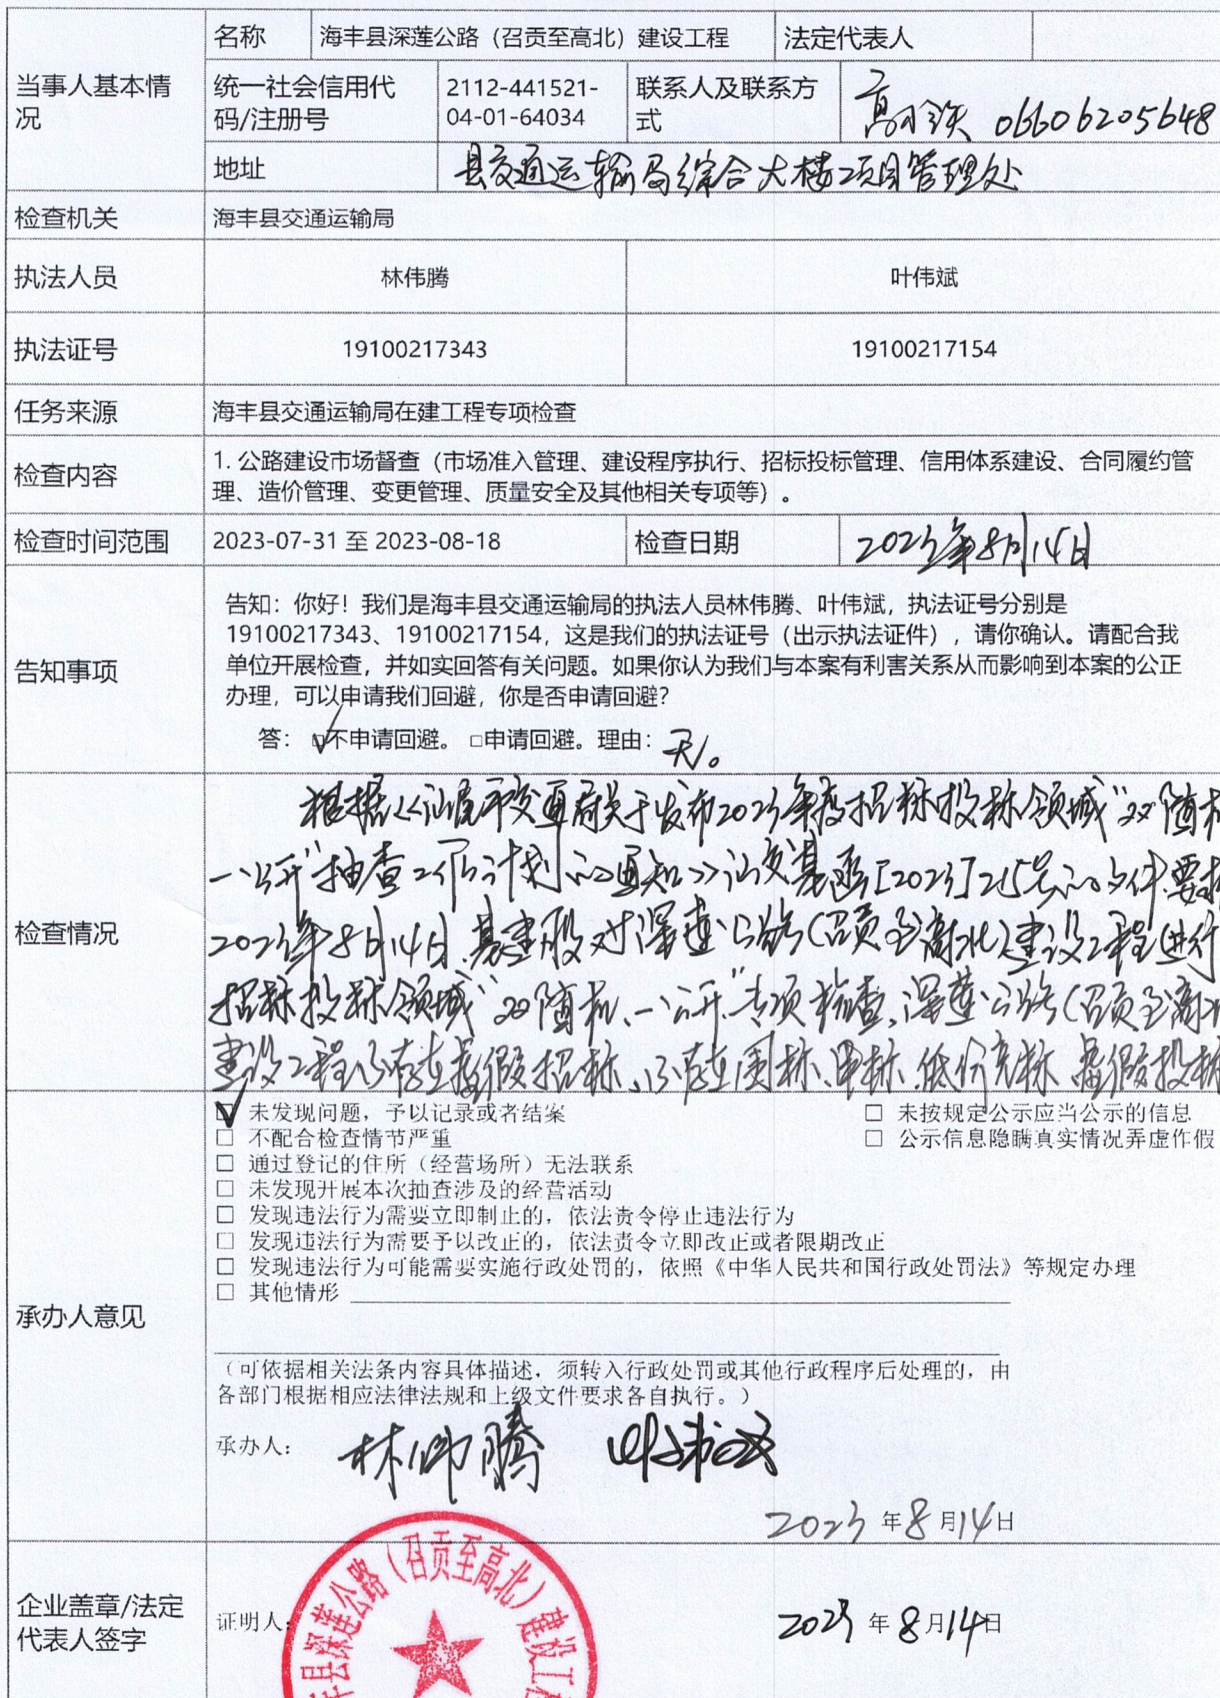 当事人基本情况
名称 海丰县深莲公路（召贡至高北）建设工程 法定代表人
统一社会信用代码/注册号 2112-441521-04-01-64034 联系人及联系方式 06606205648
地址 县交通运输局综合大楼项目管理处
检查机关 海丰县交通运输局
执法人员 林伟腾 叶伟斌
执法证号 19100217343 19100217154
任务来源 海丰县交通运输局在建工程专项检查
检查内容
1. 公路建设市场督查（市场准入管理、建设程序执行、招标投标管理、信用体系建设、合同履约管
理、造价管理、变更管理、质量安全及其他相关专项等）。
检查时间范围 2023-07-31 至 2023-08-18 检查日期 2023年8月14日
告知事项
告知：你好！我们是海丰县交通运输局的执法人员林伟腾、叶伟斌，执法证号分别是
19100217343、19100217154，这是我们的执法证号（出示执法证件），请你确认。请配合我
单位开展检查，并如实回答有关问题。如果你认为我们与本案有利害关系从而影响到本案的公正
办理，可以申请我们回避，你是否申请回避？
答： ☑不申请回避。 □申请回避。理由：无。
检查情况
根据《汕尾市交通局关于发布2023年度招标投标领域“双随机
一公开”抽查工作计划的通知》汕交基函[2023]215号的文件要
2023年8月14日，基建股对深莲公路（召贡至高北）建设工程进行
招标投标领域“双随机、一公开”专项检查，深莲公路（召贡至高北
建设工程不存在虚假招标、不存在围标、串标、低价竞标、虚假投标
承办人意见
☑ 未发现问题，予以记录或者结案 □ 未按规定公示应当公示的信息
□ 不配合检查情节严重 □ 公示信息隐瞒真实情况弄虚作假
□ 通过登记的住所（经营场所）无法联系
□ 未发现开展本次抽查涉及的经营活动
□ 发现违法行为需要立即制止的，依法责令停止违法行为
□ 发现违法行为需要予以改正的，依法责令立即改正或者限期改正
□ 发现违法行为可能需要实施行政处罚的，依照《中华人民共和国行政处罚法》等规定办理
□ 其他情形
（可依据相关法条内容具体描述，须转入行政处罚或其他行政程序后处理的，由
各部门根据相应法律法规和上级文件要求各自执行。）
承办人： 林伟腾 叶伟斌
2023 年 8 月 14 日
企业盖章/法定代表人签字
证明人：
2023 年 8 月 14 日
丰县深莲公路（召贡至高北）建设工